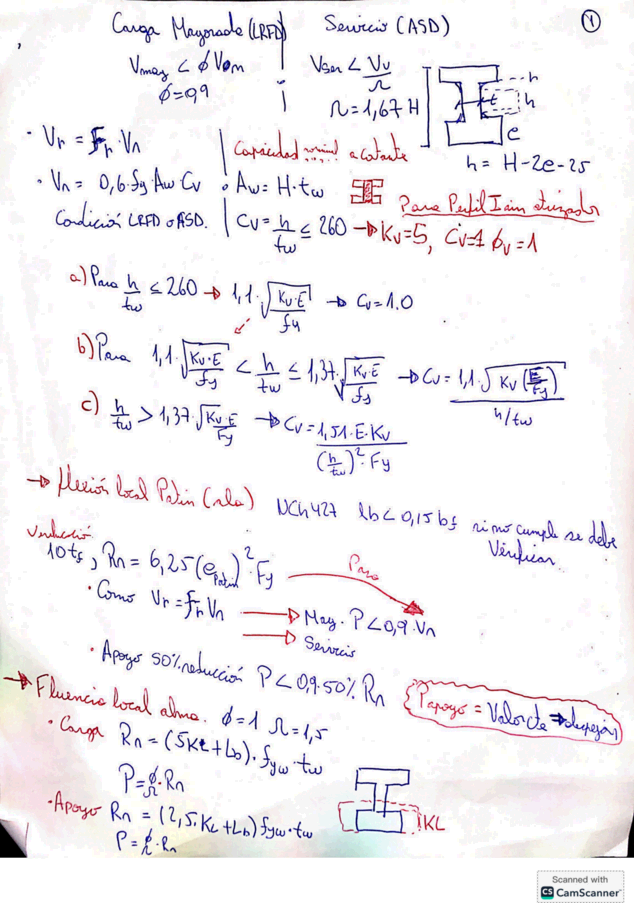 Carga Mayorada (LRFD) Servicio (ASD) 1
Vmay < ϕ Vn
ϕ=0,9
Vser < Vn/Ω
Ω=1,67 H
h
t h
e
h = H-2e-2s
• Vr = Fr · Vn
Capacidad nominal a cortante
• Vn = 0,6·fy·Aw Cv • Aw = H·tw
Para Perfil I sin atiezador
Condición LRFD o ASD. Cv = h/tw ≤ 260 → Kv=5, Cv=1 ϕv=1
a) Para h/tw ≤ 260 → 1,1·√(Kv·E/fy) → Cv=1.0
b) Para 1,1·√(Kv·E/fy) < h/tw ≤ 1,37·√(Kv·E/fy) → Cv = 1,1·√(Kv(E/Fy)) / h/tw
c) h/tw > 1,37·√(Kv·E/Fy) → Cv = 1,51·E·Kv / (h/tw)²·Fy
→ flexión local Patín (ala) NCh427 lb < 0,15 bf si no cumple se debe
Verificar
10tf, Rn = 6,25(ePatin)²·Fy
Para
• Como Vr = fr Vn → May. P<0,9·Vn
→ Servicio
• Apoyo 50% reducción P<0,9·50% Rn
→ Fluencia local alma. ϕ=1 Ω=1,5
Papoyo = Valor cte → despejar
• Carga Rn = (5KL+Lb)·fyw·tw
P=ϕ/Ω·Rn
• Apoyo Rn = (2,5·KL+Lb) fyw·tw
KL
P=ϕ/Ω·Rn
Scanned with
CS CamScanner